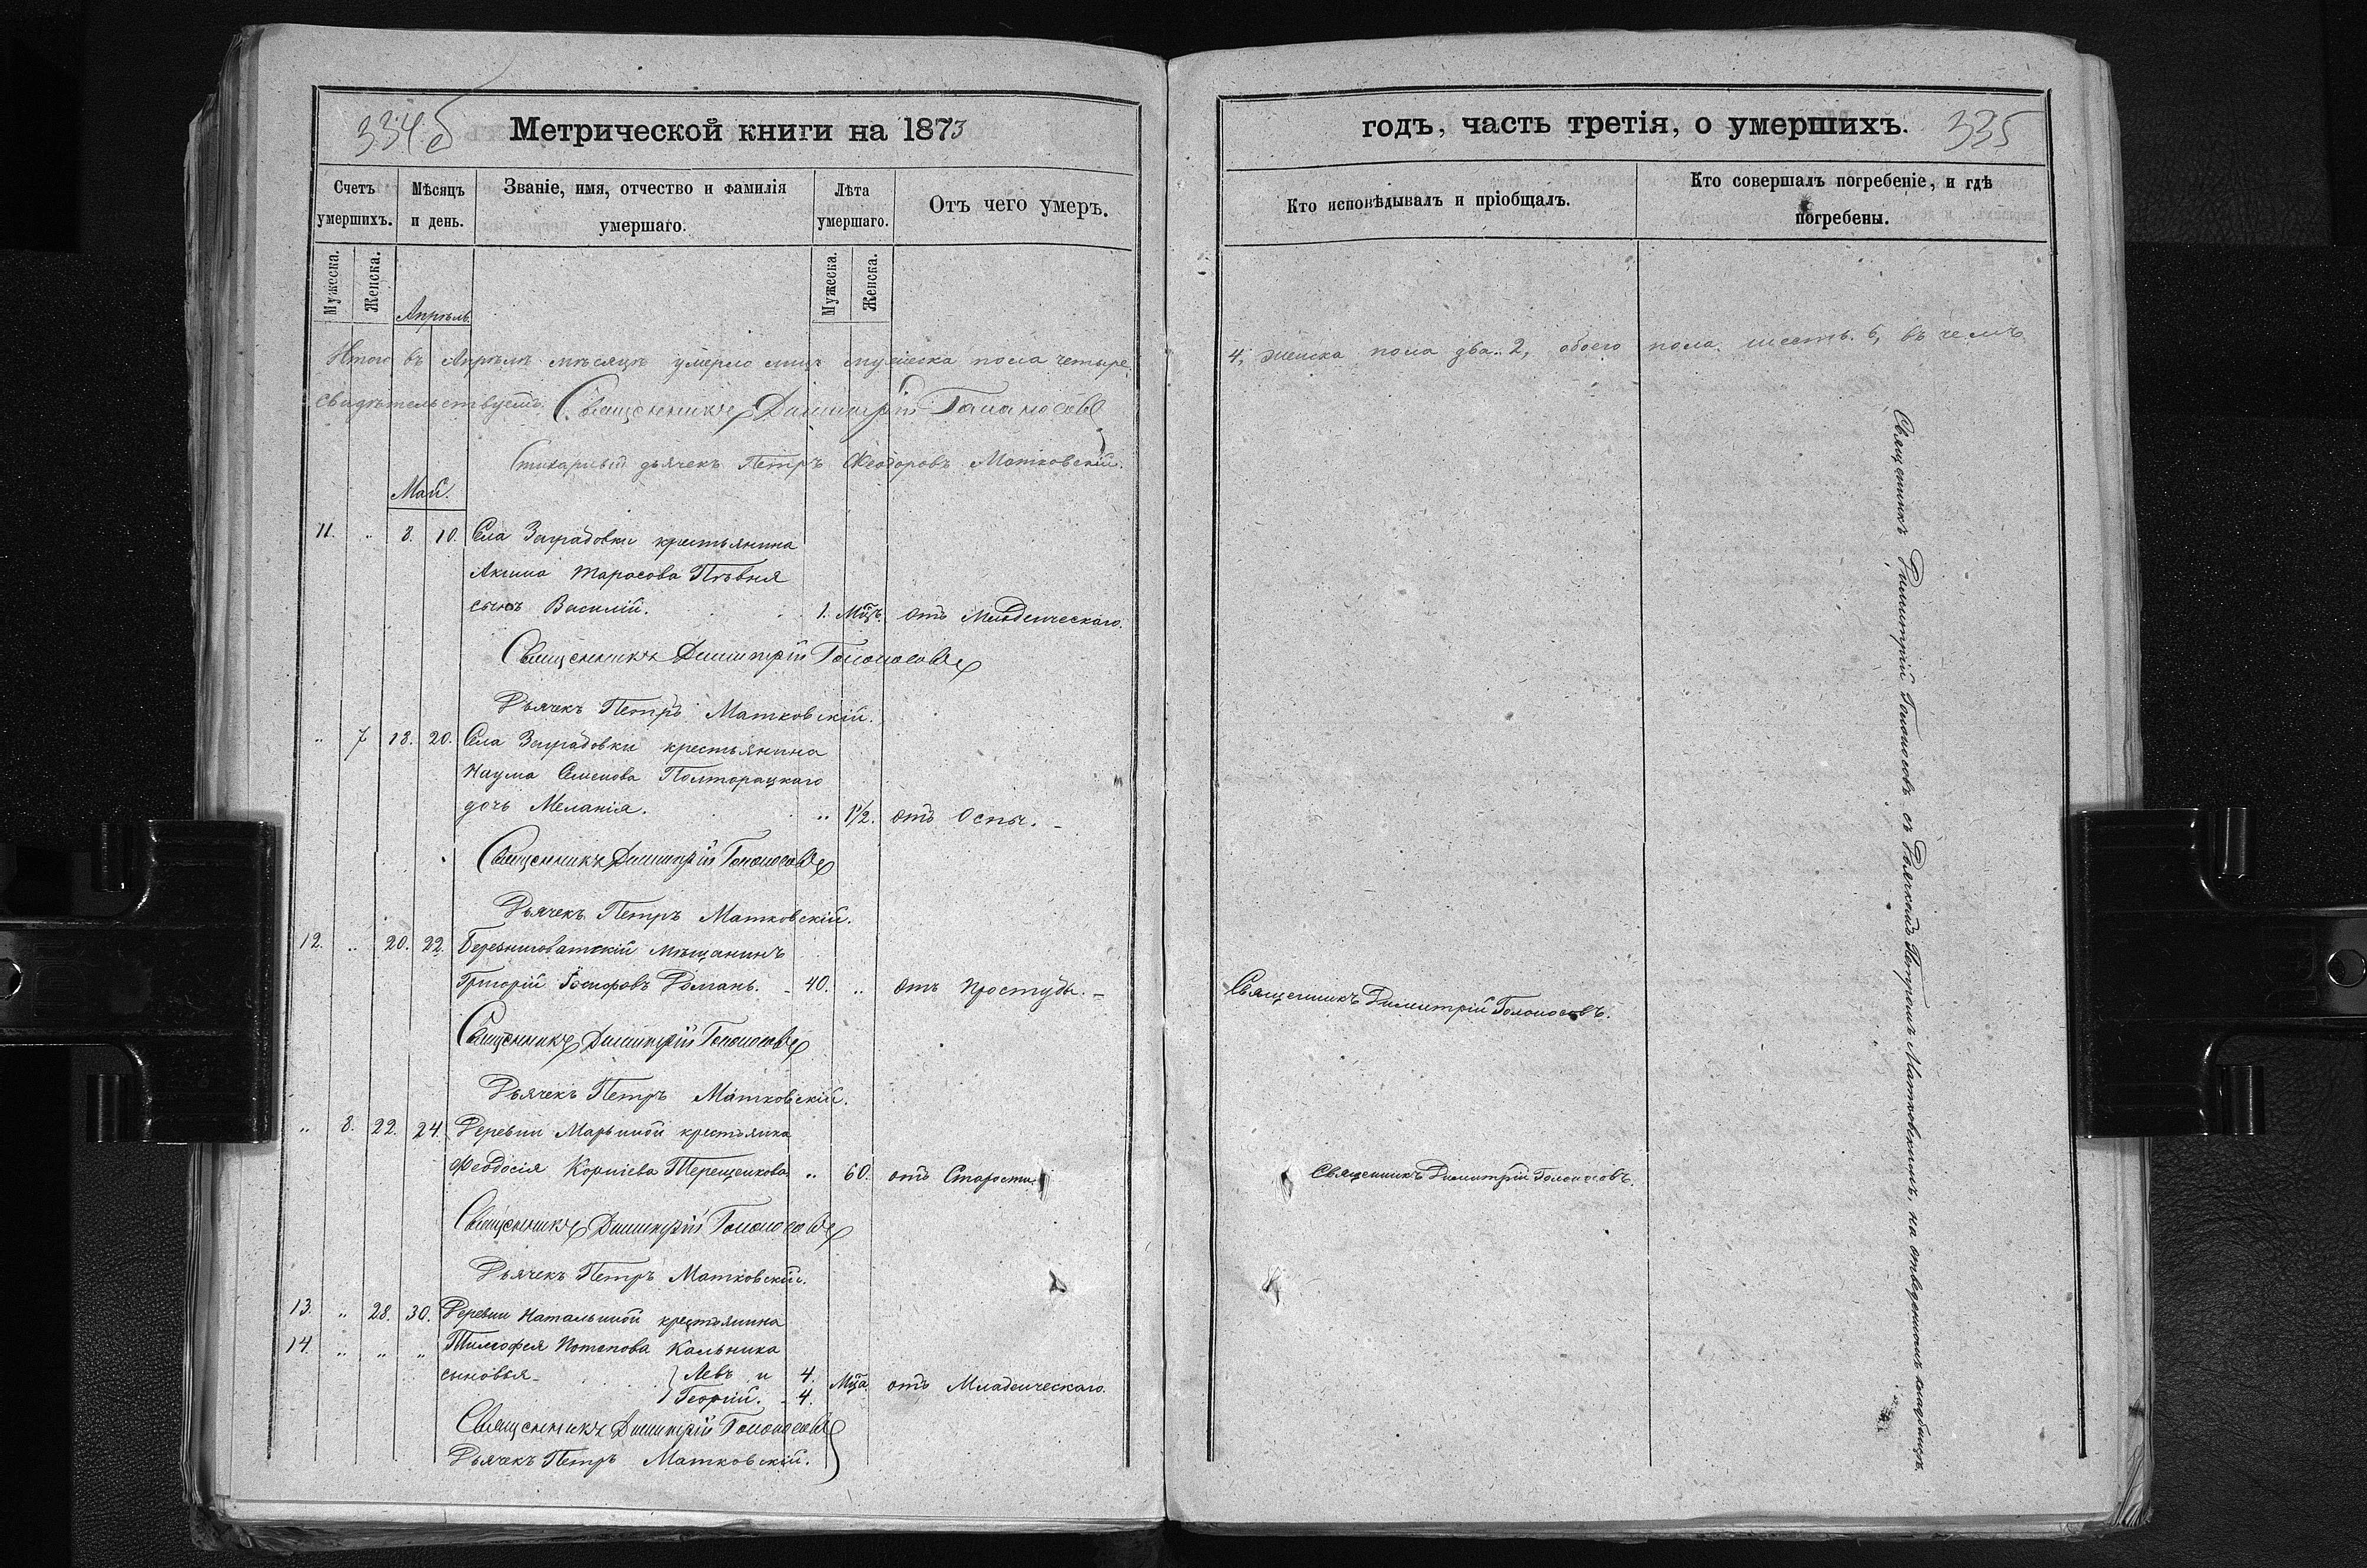 334 б
Метрической книги на 1873
Счетъ умершихъ.
Мѣсяцъ и день.
Званіе, имя, отчество и фамилія умершаго.
Лѣта умершаго.
Отъ чего умеръ.
Мужеска.
Женска.
Мужеска.
Женска.
Апрѣль.
Итого въ Апрѣлѣ мѣсяцѣ умерло лицъ мужеска пола четыре
свидѣтельствуетъ. Священникъ Димитрій Голоносовъ
Стихарный дьячекъ Петръ Ѳеодоровъ Матковскій.
Май.
11. „ 8. 10. Села Заградовки крестьянина
Акима Тарасова Пѣвня
сынъ Василій. 1. Мцъ. отъ Младенческаго.
Священникъ Димитрій Голоносовъ
Дьячекъ Петръ Матковскій.
„ 7 18. 20. Села Заградовки крестьянина
Наума Семенова Полторацкаго
дочь Меланія. „ 1½. отъ Оспы.
Священникъ Димитрій Голоносовъ
Дьячекъ Петръ Матковскій.
12. „ 20. 22. Березниговатскій мѣщанинъ
Григорій Романъ. 40. „ отъ Простуды.
Священникъ Димитрій Голоносовъ
Дьячекъ Петръ Матковскій.
„ 8. 22. 24. Деревни Марьиной крестьянка
Феодосія Корніева Терещенкова „ 60. отъ Старости.
Священникъ Димитрій Голоносовъ
Дьячекъ Петръ Матковскій.
13. „ 28. 30. Деревни Натальиной крестьянина
14. „ „ „ Тимофея Потапова Кальника
сыновья Левъ и 4.
Георгій. 4. Мца. отъ Младенческаго
Священникъ Димитрій Голоносовъ
Дьячекъ Петръ Матковскій.
годъ, часть третія, о умершихъ.
335
Кто исповѣдывалъ и пріобщалъ.
Кто совершалъ погребеніе, и гдѣ погребены.
4, женска пола два. 2, обоего пола шесть. 6, въ чемъ
Священникъ Димитрій Голоносовъ.
Священникъ Димитрій Голоносовъ.
Священникъ Димитрій Голоносовъ съ Дьячкомъ Петромъ Матковскимъ, на отведенномъ кладбищѣ.